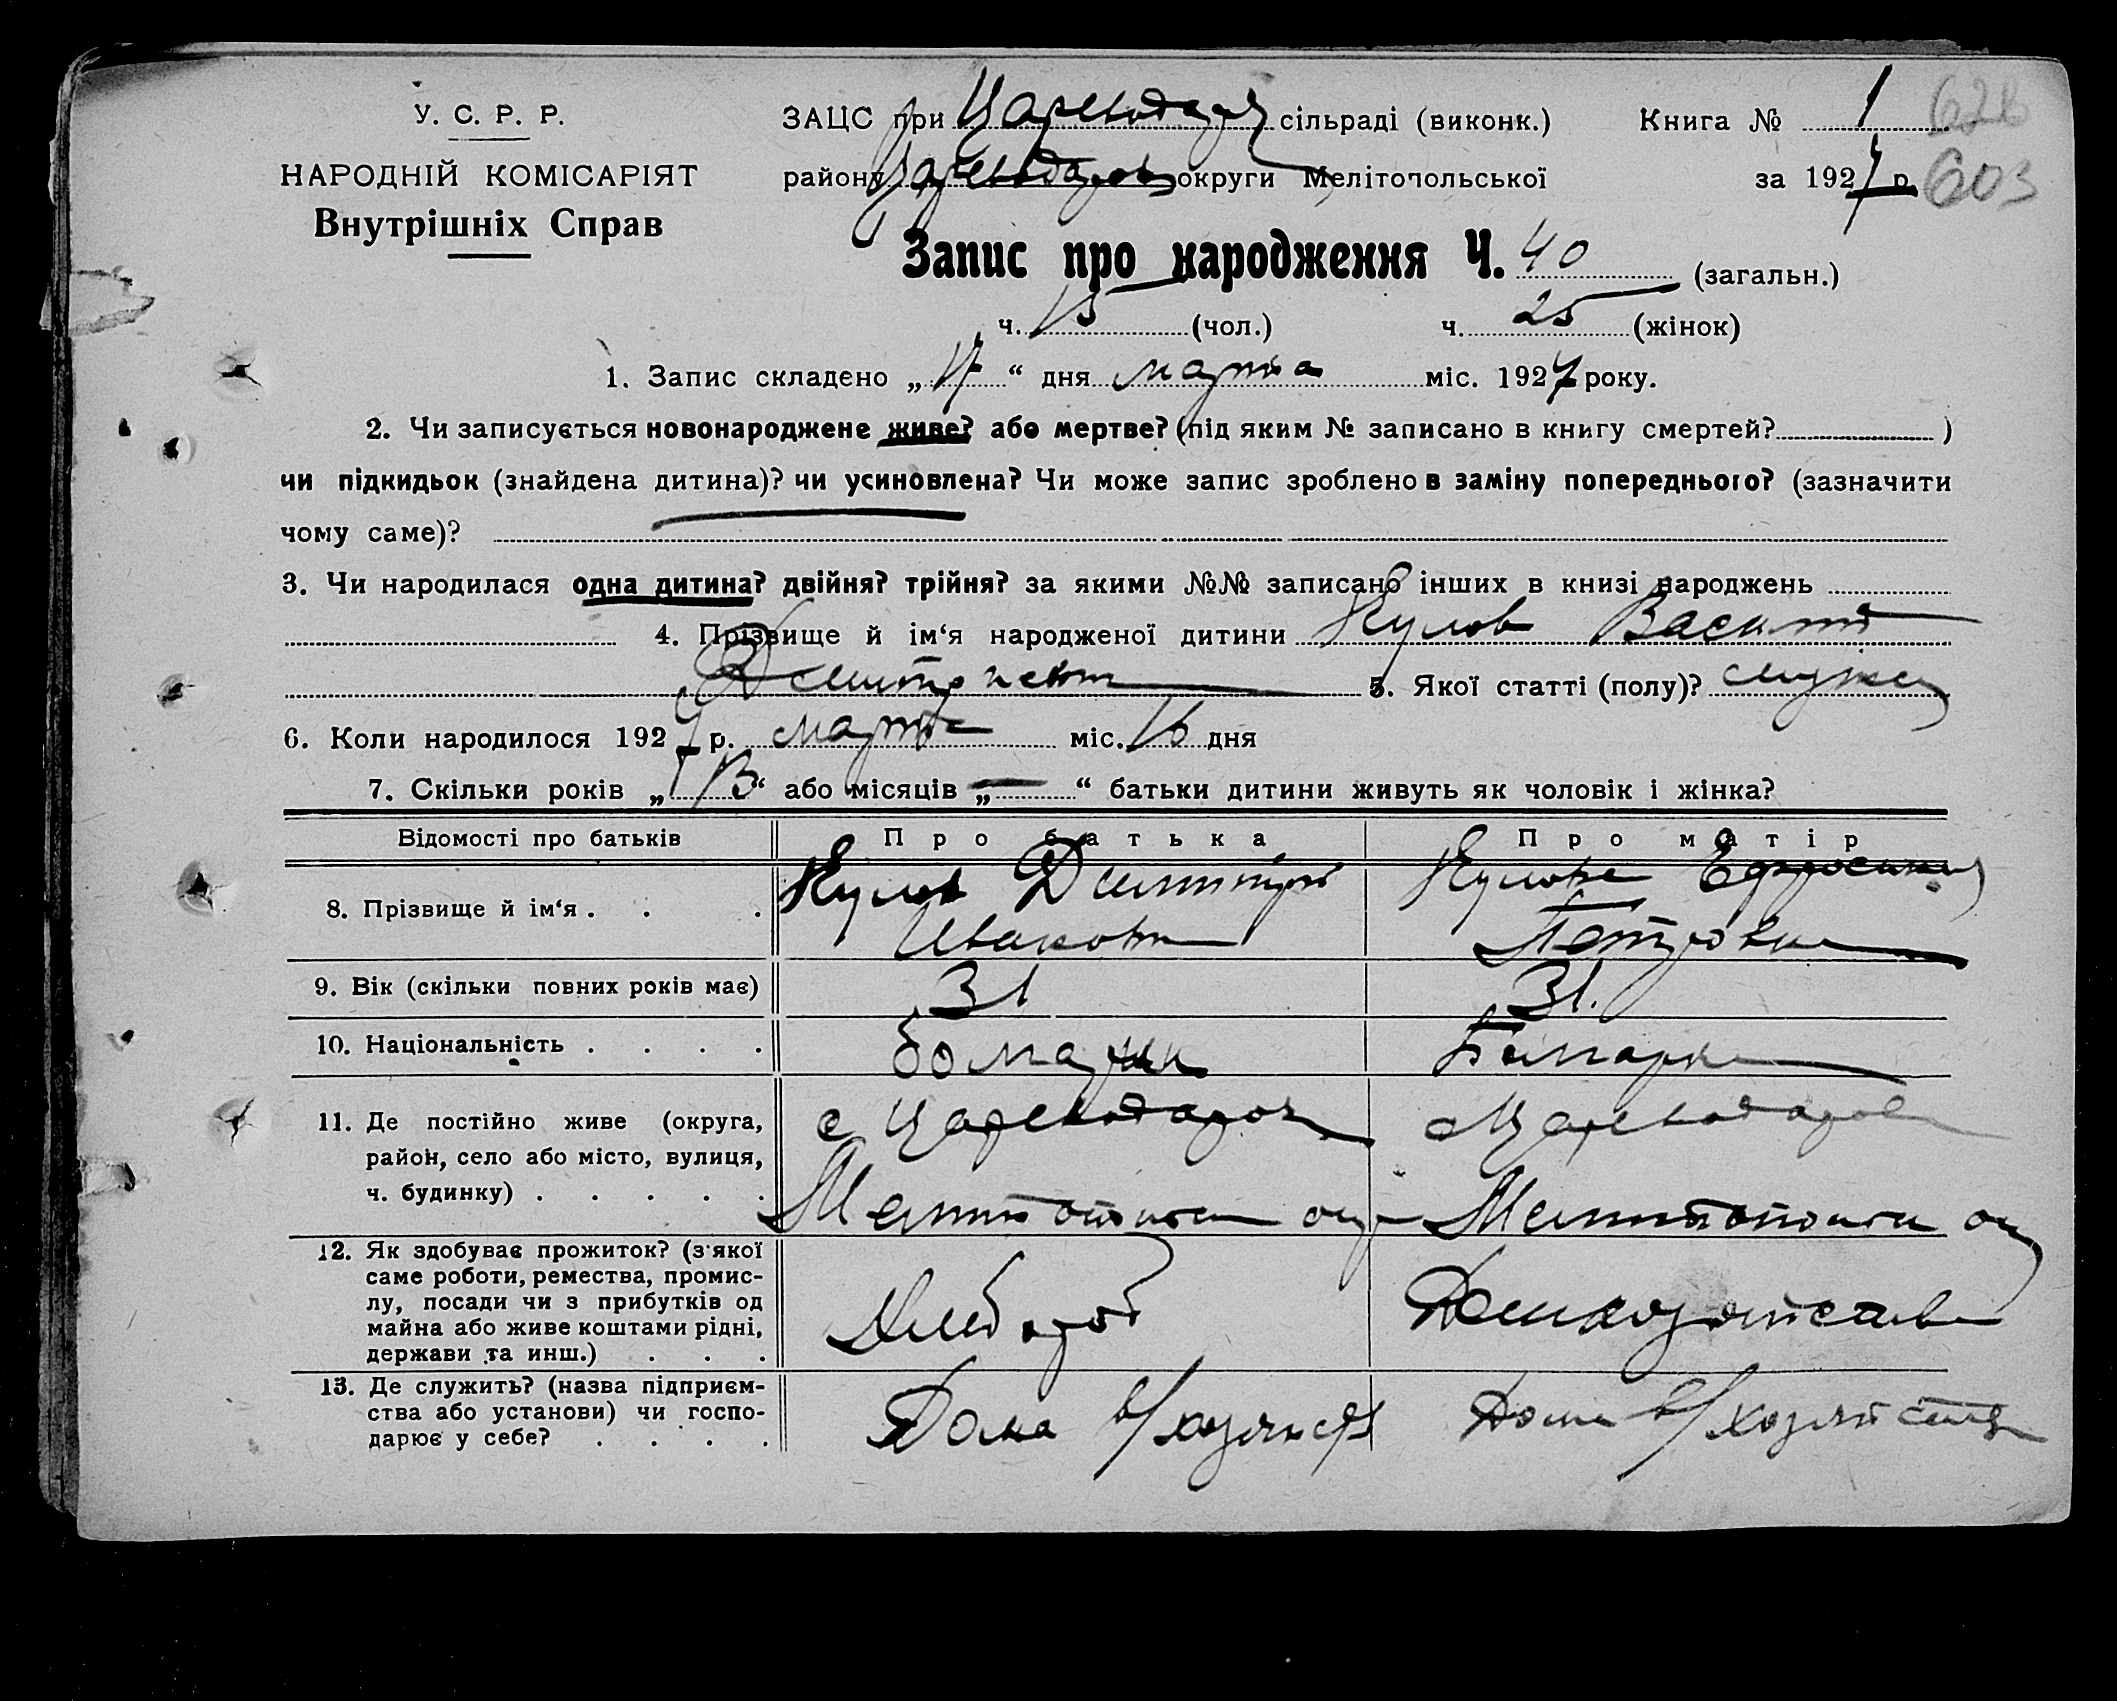 У. С. Р. Р.
НАРОДНІЙ КОМІСАРІЯТ
Внутрішніх Справ
ЗАЦС при Цареводаров сільраді (виконк.) Книга № 1
628
району Цареводаров округи Мелітопольської за 1927 р.
603
Запис про народження Ч. 40 (загальн.)
ч. 15 (чол.) ч. 25 (жінок)
1. Запис складено „17“ дня марта міс. 1927 року.
2. Чи записується новонароджене живе? або мертве? (під яким № записано в книгу смертей? )
чи підкидьок (знайдена дитина)? чи усиновлена? Чи може запис зроблено в заміну попереднього? (зазначити
чому саме)?
3. Чи народилася одна дитина? двійня? трійня? за якими №№ записано інших в книзі народжень
4. Прізвище й ім‘я народженої дитини Кулов Василий
Дмитриевич 5. Якої статті (полу)?
6. Коли народилося 1927 р. марта міс. 16 дня
7. Скільки років „13“ або місяців „—“ батьки дитини живуть як чоловік і жінка?
Відомості про батьків Про батька Про матір
8. Прізвище й ім‘я . . . Кулов Дмитрий Кулова Ефросиния
Иванович Петровна
9. Вік (скільки повних років має) 31 31.
10. Національність . . . . болгарин Болгарка
11. Де постійно живе (округа, с Цареводаров с Цареводаров
район, село або місто, вулиця,
ч. будинку) . . . . . Мелитопольск окр Мелитопольск ок
12. Як здобуває прожиток? (з'якої
саме роботи, ремества, промис-
лу, посади чи з прибутків од Хлебороб Домхозяйство
майна або живе коштами рідні,
держави та инш.) . . .
13. Де служить? (назва підприєм-
ства або установи) чи госпо- Дома в/хозяйст Дома в/хозяйстве
дарює у себе? . . . .